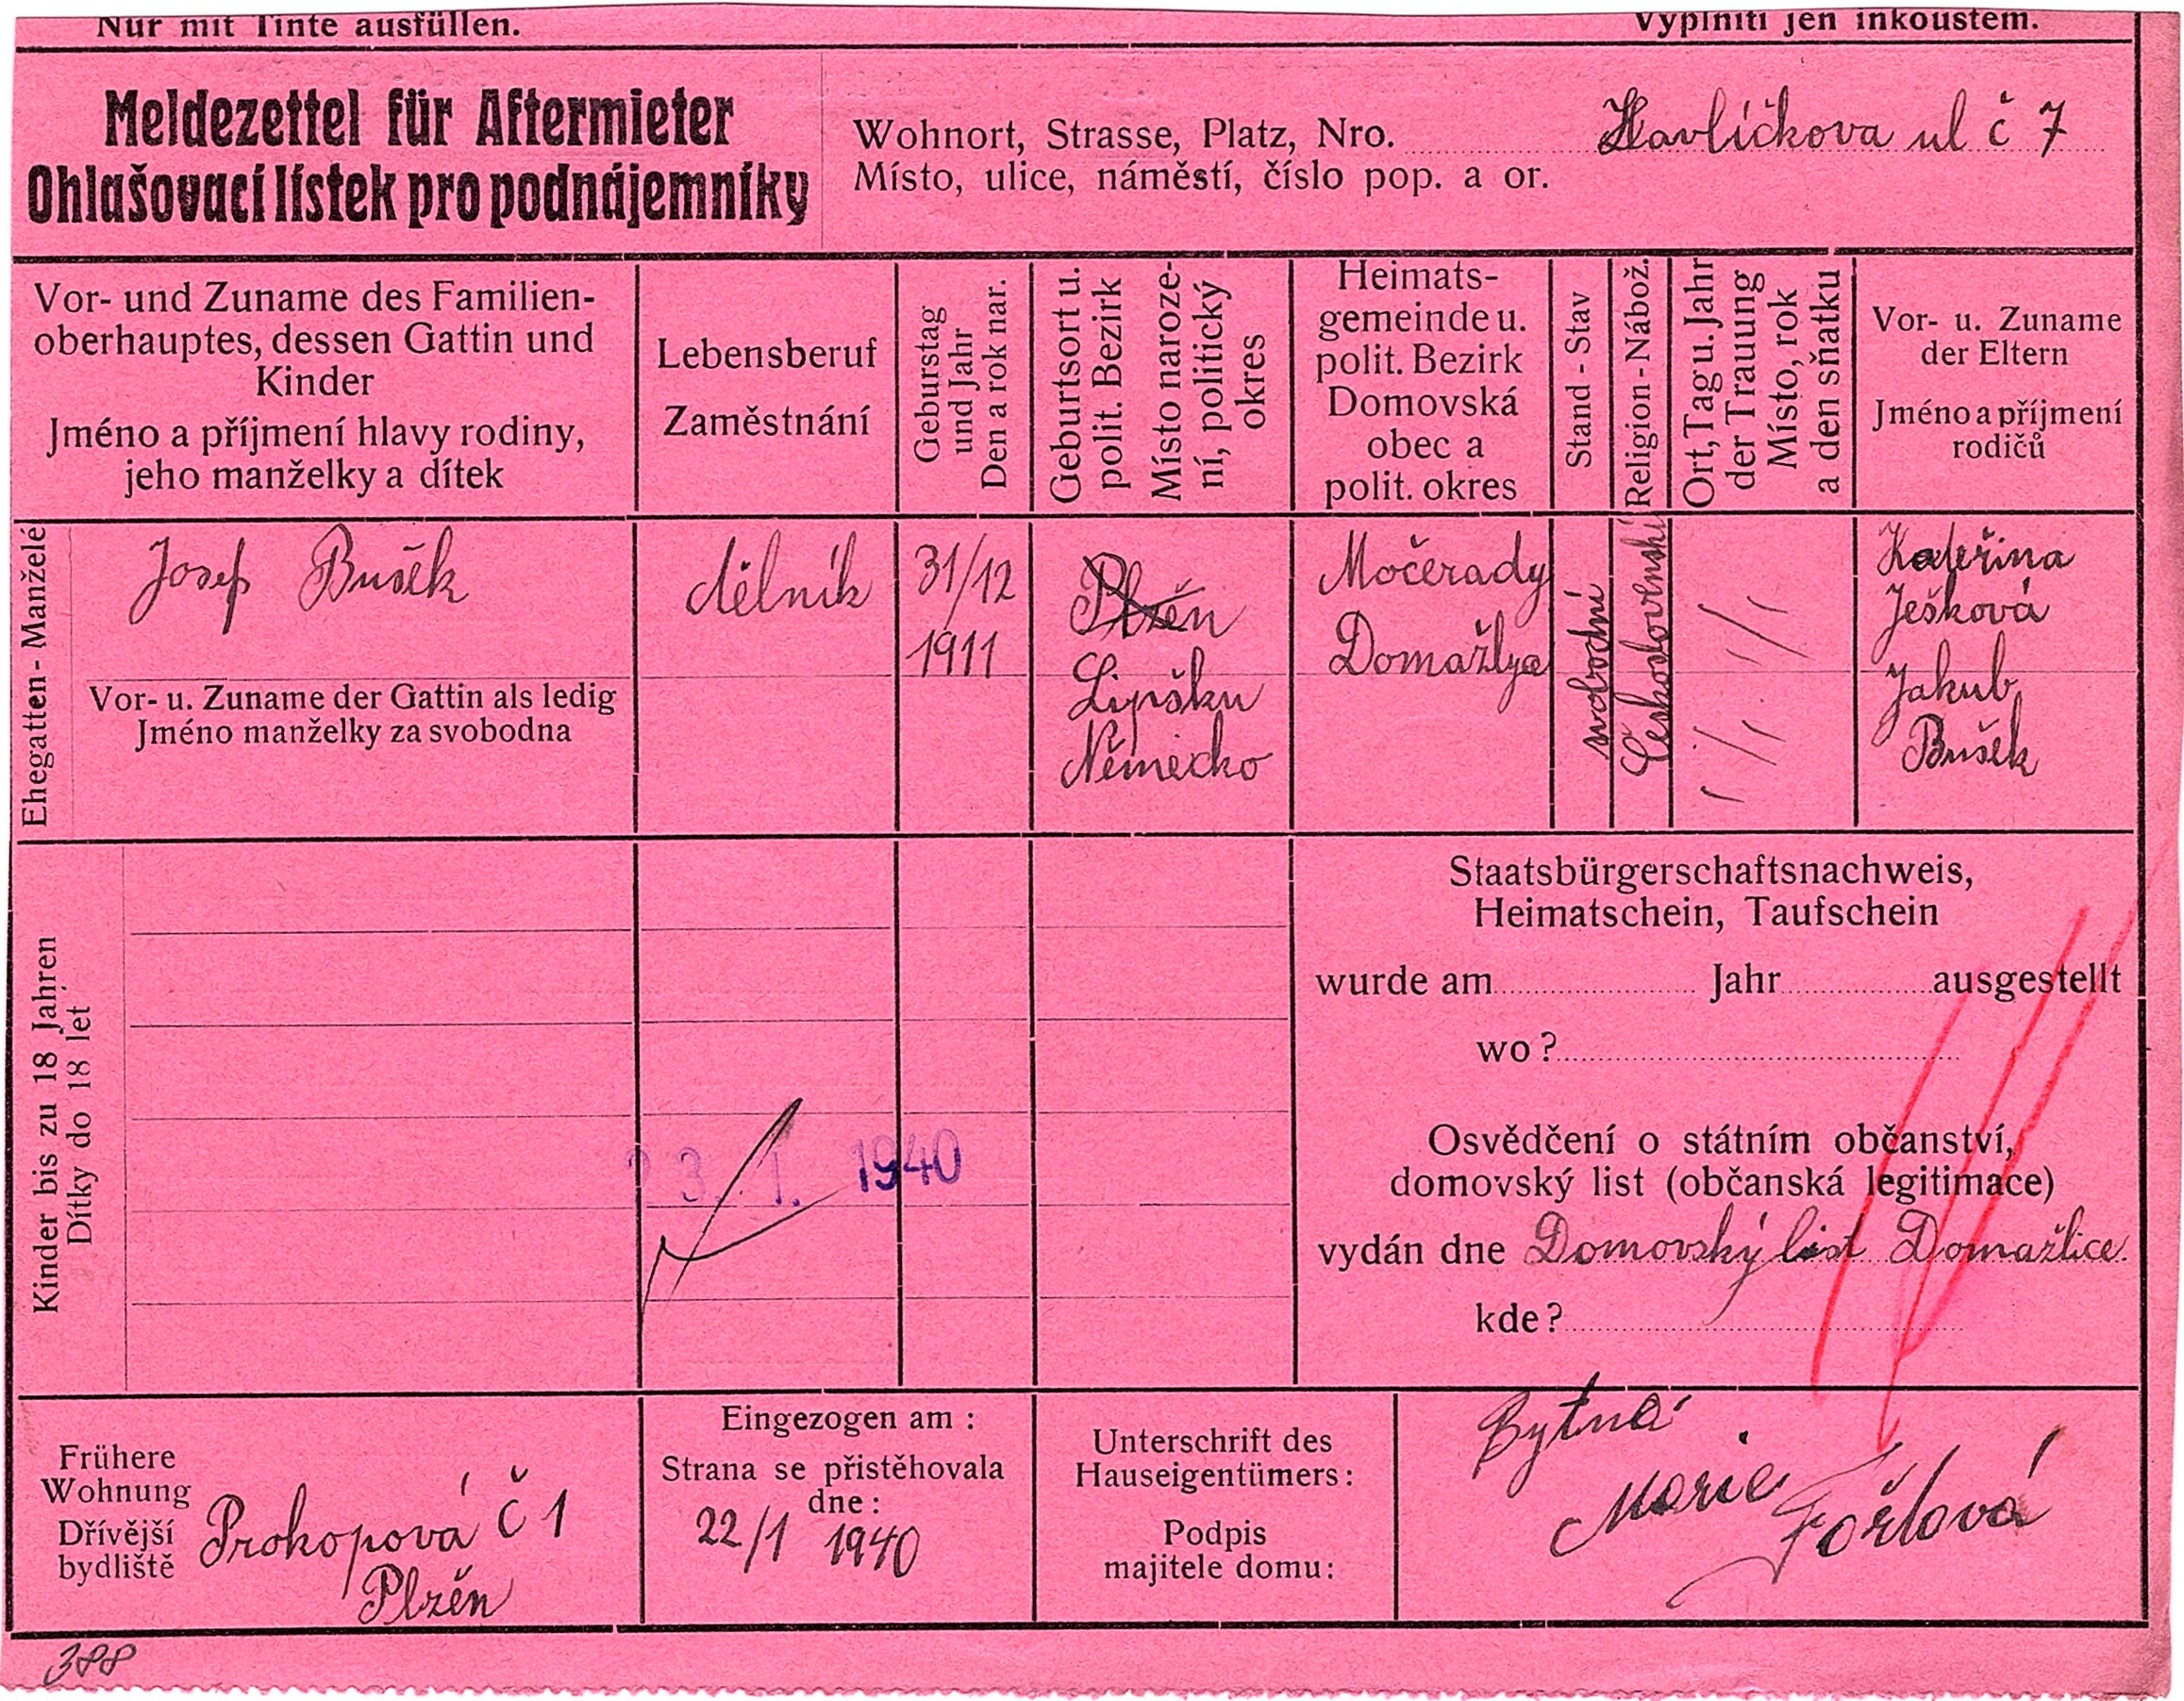 Nur mit Tinte ausfüllen.
Vyplniti jen inkoustem.
Meldezettel für Aftermieter
Ohlašovací lístek pro podnájemníky
Wohnort, Strasse, Platz, Nro.
Místo, ulice, náměstí, číslo pop. a or.
Havlíčkova ul č 7
Vor- und Zuname des Familien-
oberhauptes, dessen Gattin und
Kinder
Jméno a příjmení hlavy rodiny,
jeho manželky a dítek
Lebensberuf
Zaměstnání
Geburstag
und Jahr
Den a rok nar.
Geburtsort u.
polit. Bezirk
Místo naroze-
ní, politický
okres
Heimats-
gemeinde u.
polit. Bezirk
Domovská
obec a
polit. okres
Stand - Stav
Religion - Nábož.
Ort, Tag u. Jahr
der Trauung
Místo, rok
a den sňatku
Vor- u. Zuname
der Eltern
Jméno a příjmení
rodičů
Ehegatten - Manželé
Josef Bušek
dělník
31/12
1911
Plzěn
Lipšku
Německo
Močerady
Domažlyce
svobodní
Československí
Kateřina
Ješková
Jakub
Bušek
Vor- u. Zuname der Gattin als ledig
Jméno manželky za svobodna
Kinder bis zu 18 Jahren
Dítky do 18 let
23. 1. 1940
Staatsbürgerschaftsnachweis,
Heimatschein, Taufschein
wurde am Jahr ausgestellt
wo?
Osvědčení o státním občanství,
domovský list (občanská legitimace)
vydán dne Domovský list Domažlice
kde?
Frühere
Wohnung
Dřívější
bydliště
Prokopová č 1
Plzěn
Eingezogen am :
Strana se přistěhovala
dne :
22/1 1940
Unterschrift des
Hauseigentümers :
Podpis
majitele domu :
Bytná
Marie
388